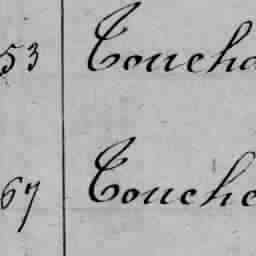 53 Toucha
67 Touche